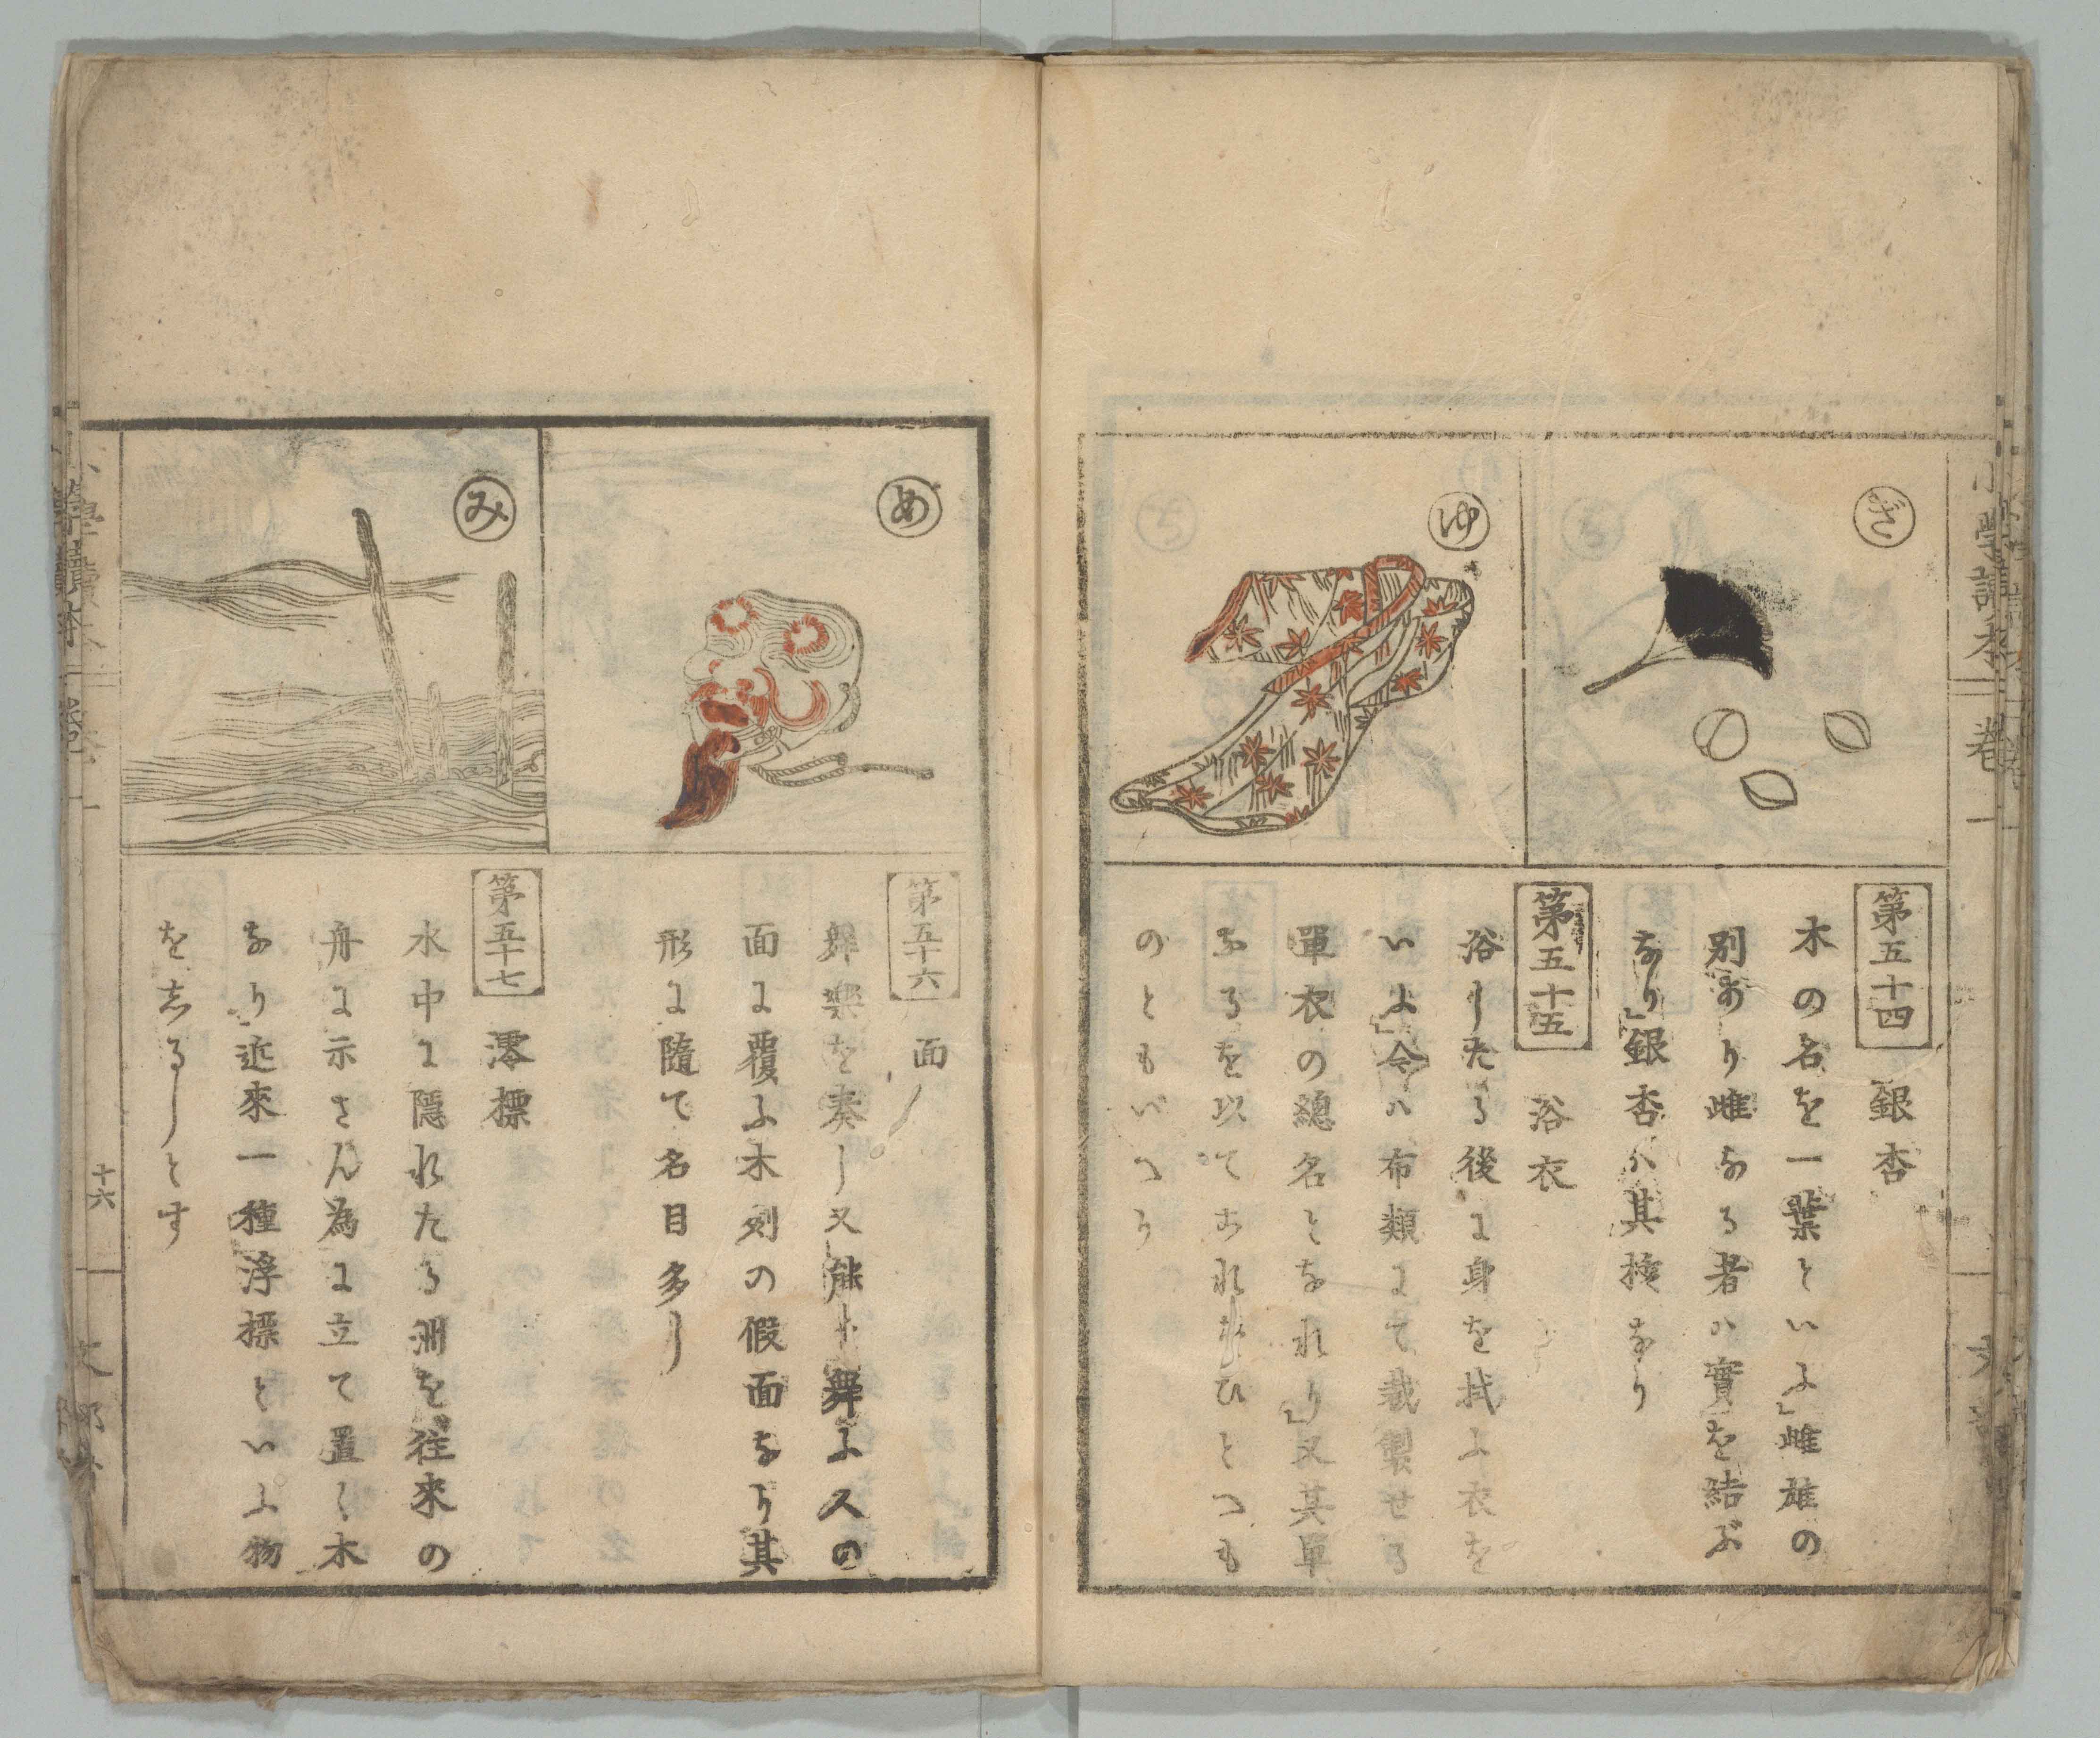 小學讀本 巻一
ぎ
ゆ
第五十四 銀杏
木の名を一葉といふ」雌雄の
別あり雌なる者ハ實を結ぶ
なり」銀杏ハ其核なり
第五十五 浴衣
浴したる後に身を拭ふ衣を
いふ」今ハ布類にて裁製せる
單衣の總名となれり」又其單
なるを以てあれひとつも
のともいへり
め
み
第五十六 面
舞楽を奏し又能を舞ふ人の
面に覆ふ木刻の假面なり其
形に隨て名目多し
第五十七 澪標
水中に隠れたる洲を往來の
舟に示さん為に立て置く木
なり近來一種浮標といふ物
を志るしとす
小學讀本 巻一
十六